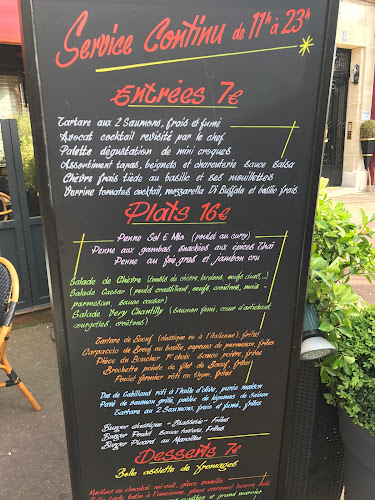 Service Continu de 11h à 23h
Entrées 7€
Tartare aux 2 Saumons, frais et fumé
Avocat cocktail revisité par le chef
Palette dégustation de mini croques
Assortiment tapas, beignets et charcuterie sauce salsa
Chèvre frais tiède au basilic et ses mouillettes
Verrine tomates cocktail, mozzarella Di Buffala et basilic frais
Plats 16€
Penne Sol e Mio (poulet au curry)
Penne aux gambas snackées aux épices Thai
Penne au foie gras et jambon cru
Salade de Chèvre (lardons, oeufs durs, ...)
Salade Cæsar (poulet croustillant, oeufs, croûtons, maïs -
parmesan, sauce caesar)
Salade Very Chantilly (Saumon fumé, coeur d'artichaut,
courgettes, croûtons)
Tartare de Boeuf (classique ou à l'italienne), frites
Carpaccio de Boeuf au basilic, copeaux de parmesan, frites
Pièce du Boucher 1er choix sauce poivre, frites
Brochette pointe de filet de Boeuf, frites
Poulet fermier rôti au thym, frites
Dos de Cabillaud rôti à l'huile d'olive, purée maison
Pavé de saumon grillé, poêlée de légumes de saison
Tartare aux 2 Saumons, frais et fumé, frites
Burger classique - Brasserie - Frites
Burger Poulet sauce tartare, Frites
Burger Picard au Maroilles
Desserts 7€
Belle assiette de fromages
Moelleux au chocolat mi-cuit, glace vanille
Tarte tatin à l'ancienne, glace caramel beurre salé
et grand marnier